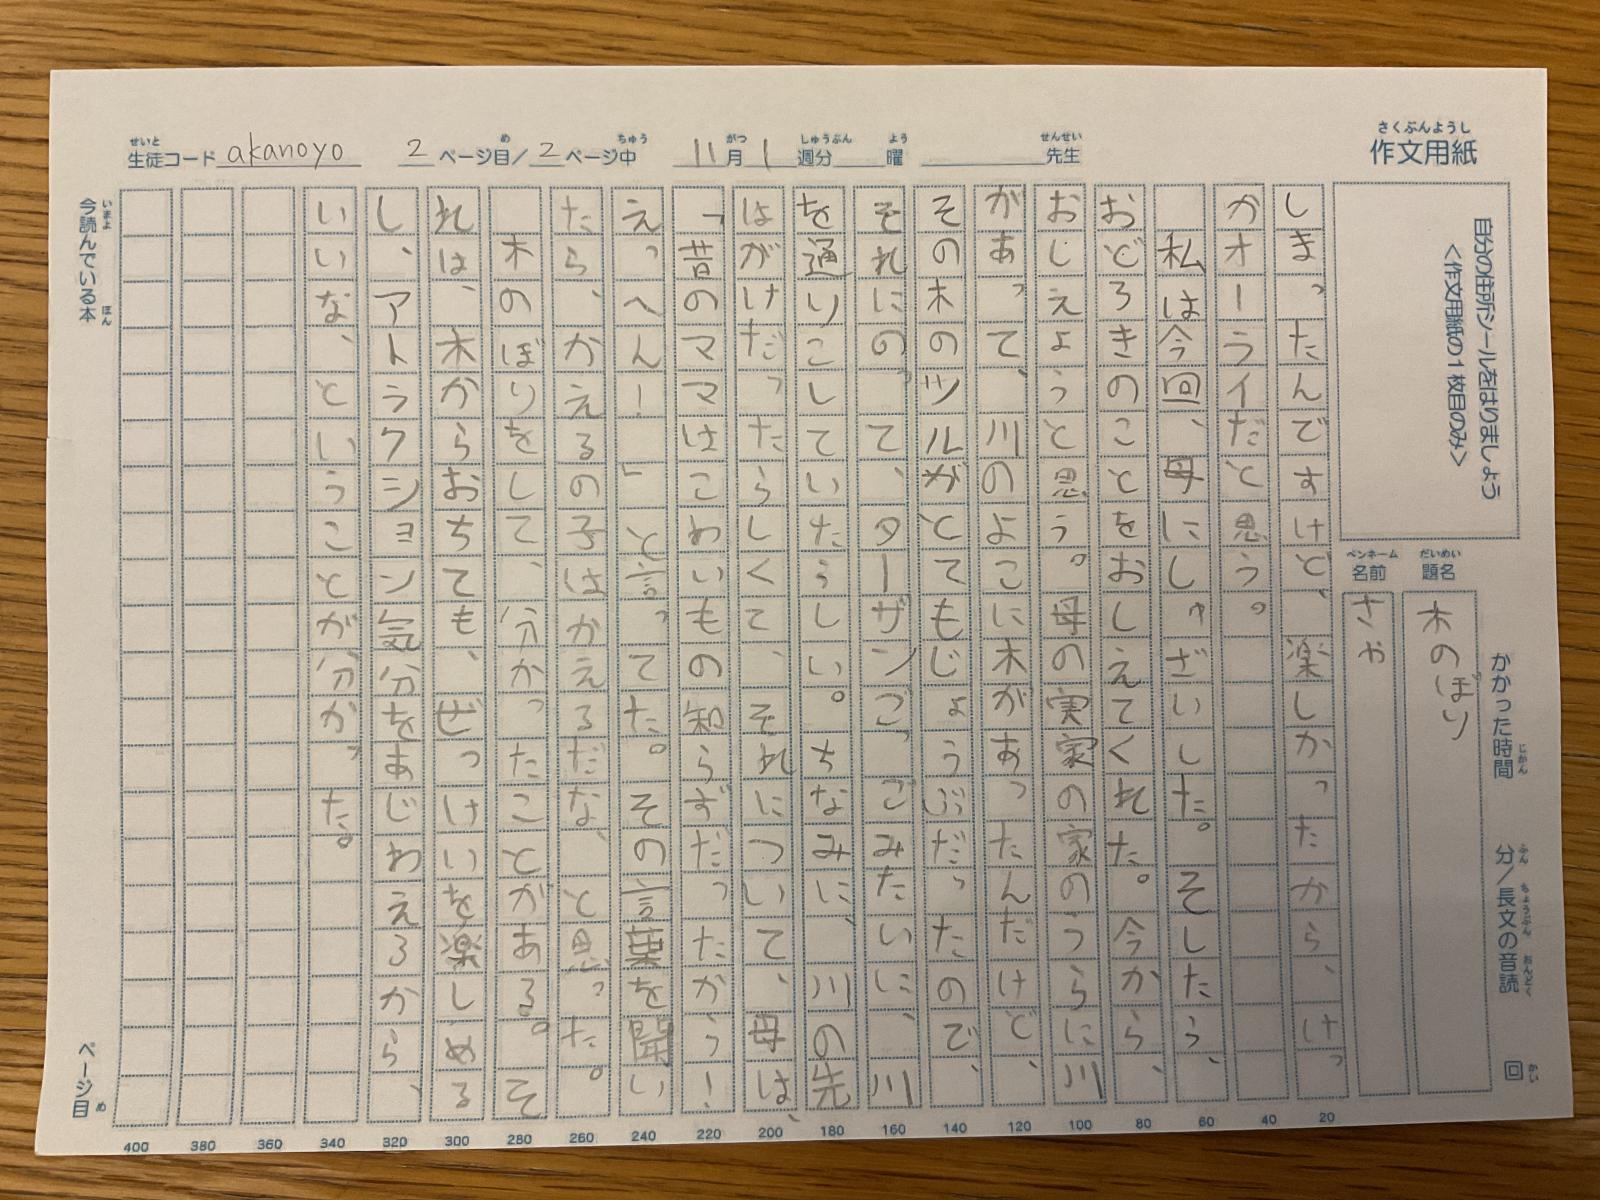 作文用紙
さくぶんようし
生徒コード akanoyo 2 ページ目/2 ページ中 11月1週分 曜 先生
せいと め ちゅう がつ しゅうぶん よう せんせい
自分の住所シールをはりましょう
<作文用紙の1枚目のみ>
だいめい
題名 木のぼり
ペンネーム
名前 さや
かかった時間 分/長文の音読 回
じかん ふん ちょうぶん おんどく かい
しまったんですけど、楽しかったから、けっ
かオーライだと思う。
私は今回、母にしゅざいした。そしたら、
おどろきのことをおしえてくれた。今から、
おしえようと思う。母の実家の家のうらに川
があって、川のよこに木があったんだけど、
その木のツルがとてもじょうぶだったので、
それにのって、ターザンごっごみたいに、川
を通りこしていたらしい。ちなみに、川の先
はがけだったらしくて、それについて、母は、
「昔のママはこわいもの知らずだったかう!
えっへん!」と言ってた。その言葉を聞い
たら、かえるの子はかえるだな、と思った。
木のぼりをして、分かったことがある。そ
れは、木からおちても、ぜっけいを楽しめる
し、アトラクション気分をあじわえるから、
いいな、ということが分かった。
今読んでいる本 ページ目
いまよ ほん め
20
40
60
80
100
120
140
160
180
200
220
240
260
280
300
320
340
360
380
400